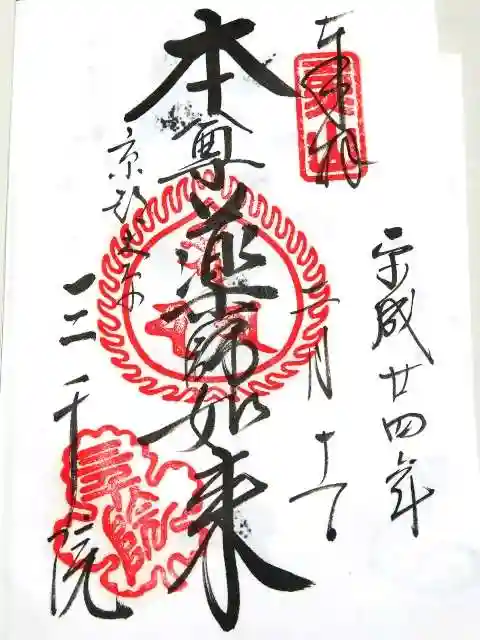 平成廿四年
奉拝
二月十一
本尊薬師如来
京都大原
三千院